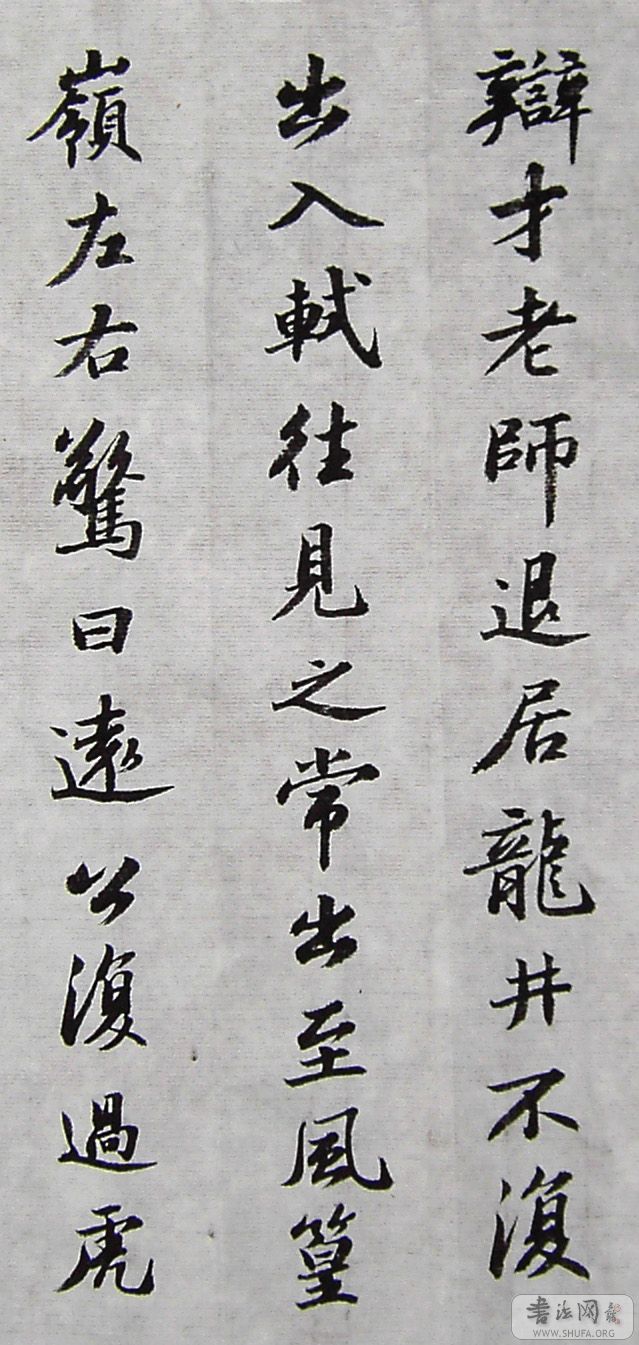 辯才老師退居龍井不復
出入軾往見之常出至風篁
嶺左右驚曰遠公復過虎
書法网
WWW.SHUFA.ORG